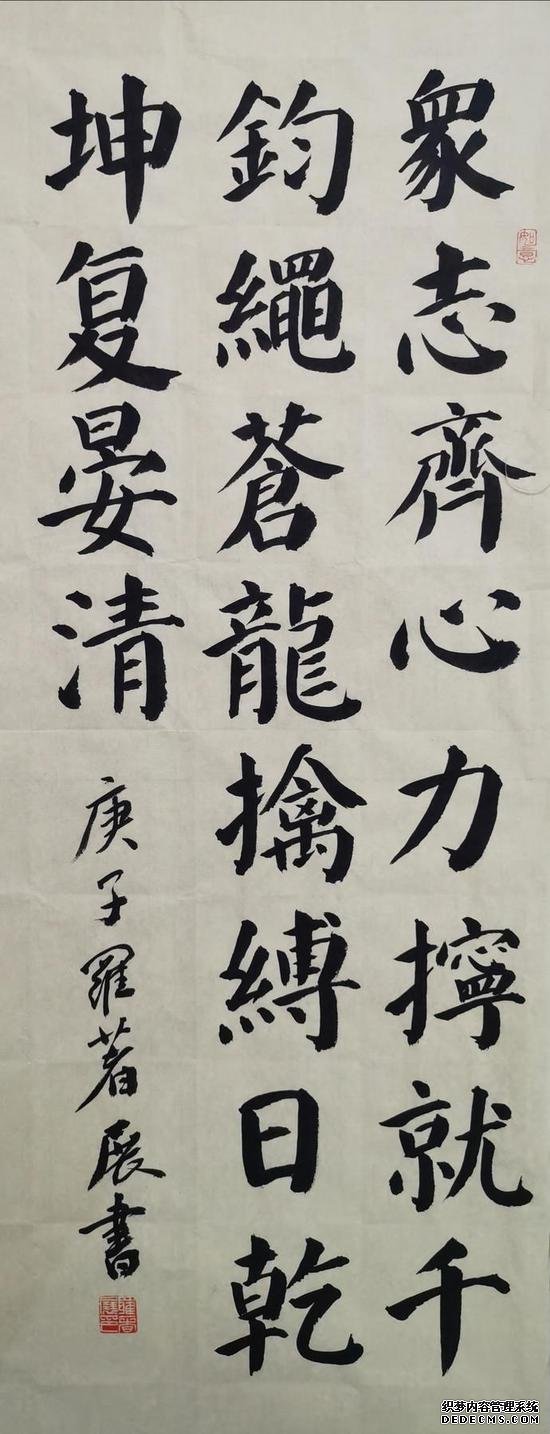 眾志齊心力擰就千
鈞繩蒼龍擒縛日乾
坤复晏清
庚子羅著展書
如意
织梦内容管理系统
DEDECMS.COM